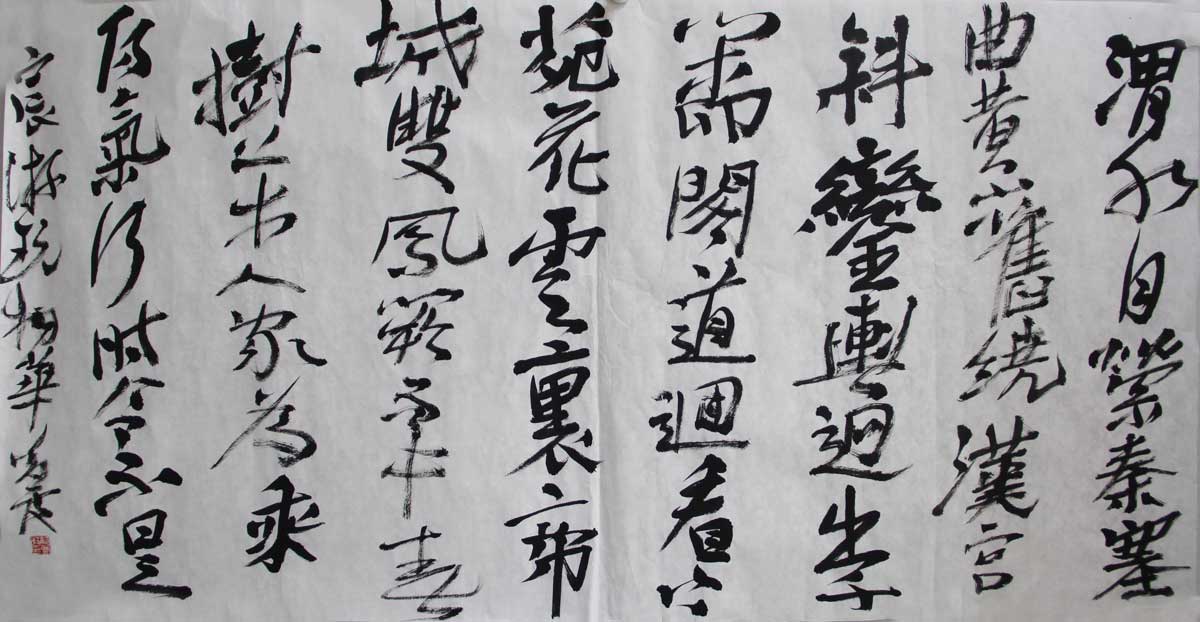 渭水自縈秦塞
曲黃山舊繞漢宮
斜鑾輿迥出千
門柳閣道迴看上
苑花雲裏帝
城雙鳳闕雨中春
樹萬人家為乘
陽氣行時令不是
宸游玩物華